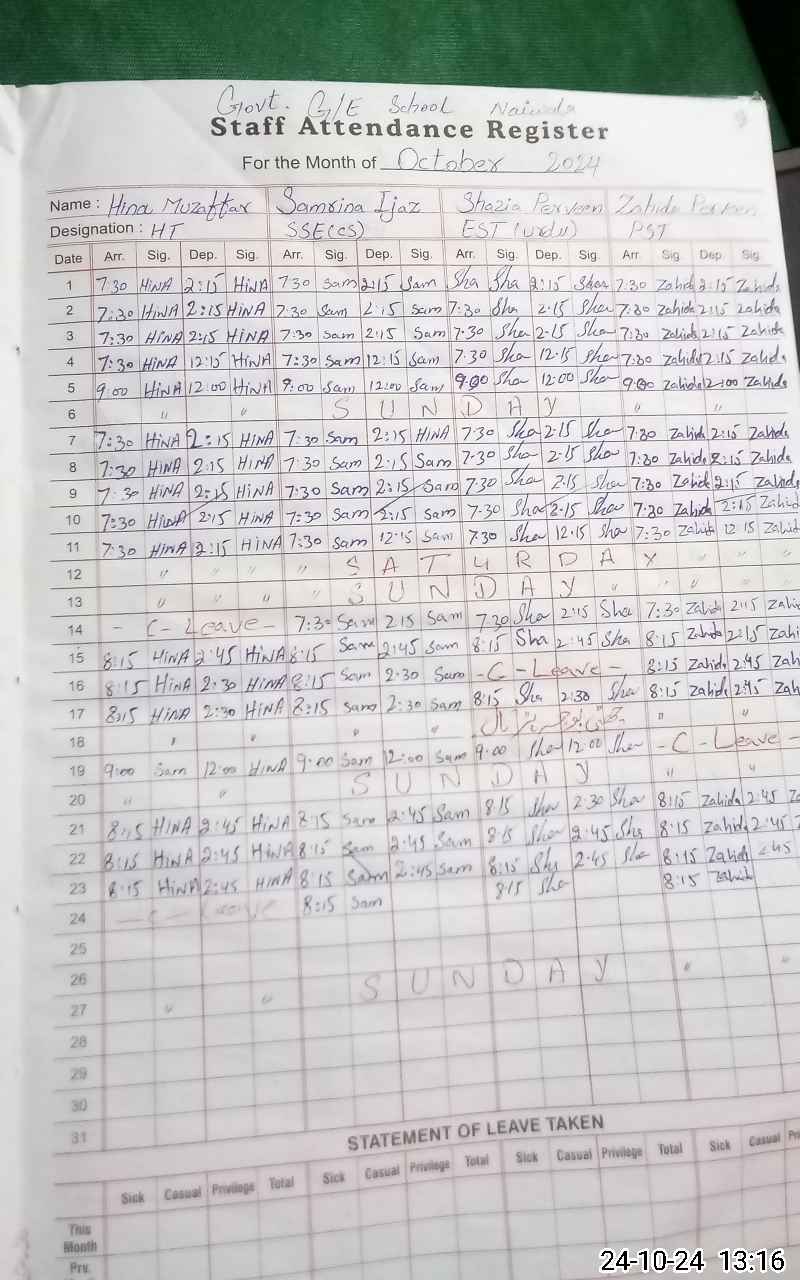 Govt. G/E School Naiwala
Staff Attendance Register
For the Month of October 2024
Name : Hina Muzaffar Samrina Ijaz Shazia Perveen Zahida Perveen
Designation : HT SSE(CS) EST (urdu) PST
Date Arr. Sig. Dep. Sig. Arr. Sig. Dep. Sig. Arr. Sig. Dep. Sig. Arr. Sig. Dep. Sig.
1 7:30 HiNA 2:15 HiNA 7:30 Sam 2:15 Sam Sha Sha 2:15 Sha 7:30 Zahida 2:15 Zahida
2 7:30 HiNA 2:15 HiNA 7:30 Sam 2:15 Sam 7:30 Sha 2:15 Sha 7:30 Zahida 2:15 Zahida
3 7:30 HiNA 2:15 HiNA 7:30 Sam 2:15 Sam 7:30 Sha 2:15 Sha 7:30 Zahida 2:15 Zahida
4 7:30 HiNA 12:15 HiNA 7:30 Sam 12:15 Sam 7:30 Sha 12:15 Sha 7:30 Zahida 12:15 Zahida
5 9:00 HiNA 12:00 HiNA 9:00 Sam 12:00 Sam 9:00 Sha 12:00 Sha 9:00 Zahida 12:00 Zahida
6 " " S U N D A Y " "
7 7:30 HiNA 2:15 HiNA 7:30 Sam 2:15 HiNA 7:30 Sha 2:15 Sha 7:30 Zahida 2:15 Zahida
8 7:30 HiNA 2:15 HiNA 7:30 Sam 2:15 Sam 7:30 Sha 2:15 Sha 7:30 Zahida 2:15 Zahida
9 7:30 HiNA 2:15 HiNA 7:30 Sam 2:15 Sam 7:30 Sha 2:15 Sha 7:30 Zahida 2:15 Zahida
10 7:30 HiNA 2:15 HiNA 7:30 Sam 2:15 Sam 7:30 Sha 2:15 Sha 7:30 Zahida 2:15 Zahida
11 7:30 HiNA 2:15 HiNA 7:30 Sam 12:15 Sam 7:30 Sha 12:15 Sha 7:30 Zahida 12:15 Zahida
12 " " " " S A T U R D A Y " " "
13 " " " " S U N D A Y " " " "
14 - C - Leave - 7:30 Sam 2:15 Sam 7:30 Sha 2:15 Sha 7:30 Zahida 2:15 Zahi
15 8:15 HiNA 2:45 HiNA 8:15 Sam 2:45 Sam 8:15 Sha 2:45 Sha 8:15 Zahida 2:15 Zah
16 8:15 HiNA 2:30 HiNA 8:15 Sam 2:30 Sam - C - Leave - 8:15 Zahida 2:45 Zah
17 8:15 HiNA 2:30 HiNA 8:15 Sam 2:30 Sam 8:15 Sha 2:30 Sha 8:15 Zahida 2:45 Zah
18 " " " " " "
19 9:00 Sam 12:00 HiNA 9:00 Sam 12:00 Sam 9:00 Sha 12:00 Sha - C - Leave -
20 " " S U N D A Y " "
21 8:15 HiNA 2:45 HiNA 8:15 Sam 2:45 Sam 8:15 Sha 2:30 Sha 8:15 Zahida 2:45 Za
22 8:15 HiNA 2:45 HiNA 8:15 Sam 2:45 Sam 8:15 Sha 2:45 Sha 8:15 Zahida 2:45 Z
23 8:15 HiNA 2:45 HiNA 8:15 Sam 2:45 Sam 8:15 Sha 2:45 Sha 8:15 Zahida 2:45
24 - C - Leave 8:15 Sam 8:15 Sha 8:15 Zahida
25
26
27 " " S U N D A Y " "
28
29
30
31
STATEMENT OF LEAVE TAKEN
Sick Casual Privilege Total Sick Casual Privilege Total Sick Casual Privilege Total Sick Casual Pri
This
Month
Prv.
24-10-24 13:16